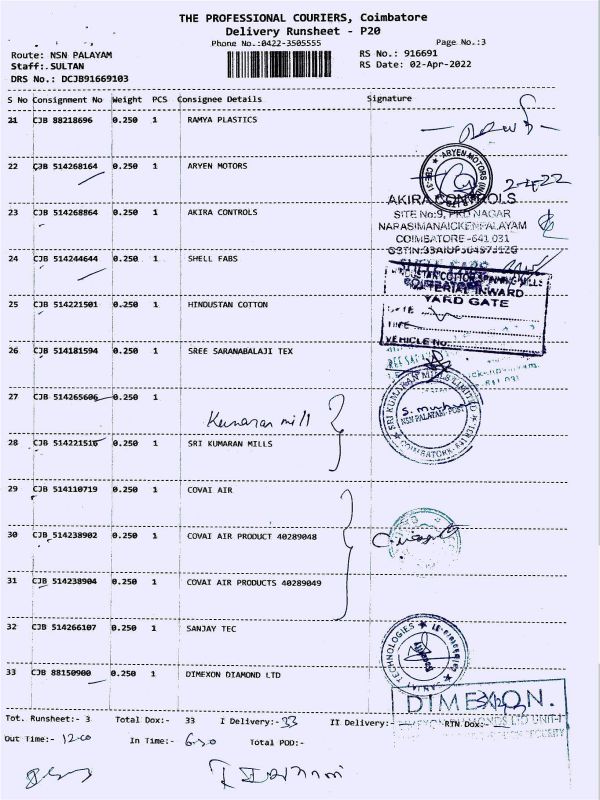 THE PROFESSIONAL COURIERS, Coimbatore
Delivery Runsheet - P20
Phone No.:0422-3505555 Page No.:3
Route: NSN PALAYAM RS No.: 916691
Staff:.SULTAN RS Date: 02-Apr-2022
DRS No.: DCJB91669103
S No Consignment No Weight PCS Consignee Details Signature
21 CJB 88218696 0.250 1 RAMYA PLASTICS
22 CJB 514268164 0.250 1 ARYEN MOTORS
2-4-22
23 CJB 514268864 0.250 1 AKIRA CONTROLS
AKIRA CONTROLS
SITE No:9, PKD NAGAR
NARASIMANAICKENPALAYAM
COIMBATORE-641 031
24 CJB 514244644 0.250 1 SHELL FABS
HINDUSTAN COTTON SPINNING MILLS
MATERIAL INWARD
YARD GATE
DATE
TIME
VEHICLE No.
25 CJB 514221501 0.250 1 HINDUSTAN COTTON
26 CJB 514181594 0.250 1 SREE SARANABALAJI TEX
27 CJB 514265606 0.250 1
Kumaran mill
SRI KUMARAN MILLS LIMITED
NSN PALAYAM POST
COIMBATORE
28 CJB 514221516 0.250 1 SRI KUMARAN MILLS
29 CJB 514110719 0.250 1 COVAI AIR
30 CJB 514238902 0.250 1 COVAI AIR PRODUCT 40289048
31 CJB 514238904 0.250 1 COVAI AIR PRODUCTS 40289049
32 CJB 514266107 0.250 1 SANJAY TEC
TECHNOLOGIES
33 CJB 88150900 0.250 1 DIMEXON DIAMOND LTD
DIMEXON.
Tot. Runsheet:- 3 Total Dox:- 33 I Delivery:- 33 II Delivery:- RTN Dox:-
DIMEXON DIAMONDS LTD UNIT-I
SECURITY
Out Time:- 12-00 In Time:- 6-30 Total POD:-